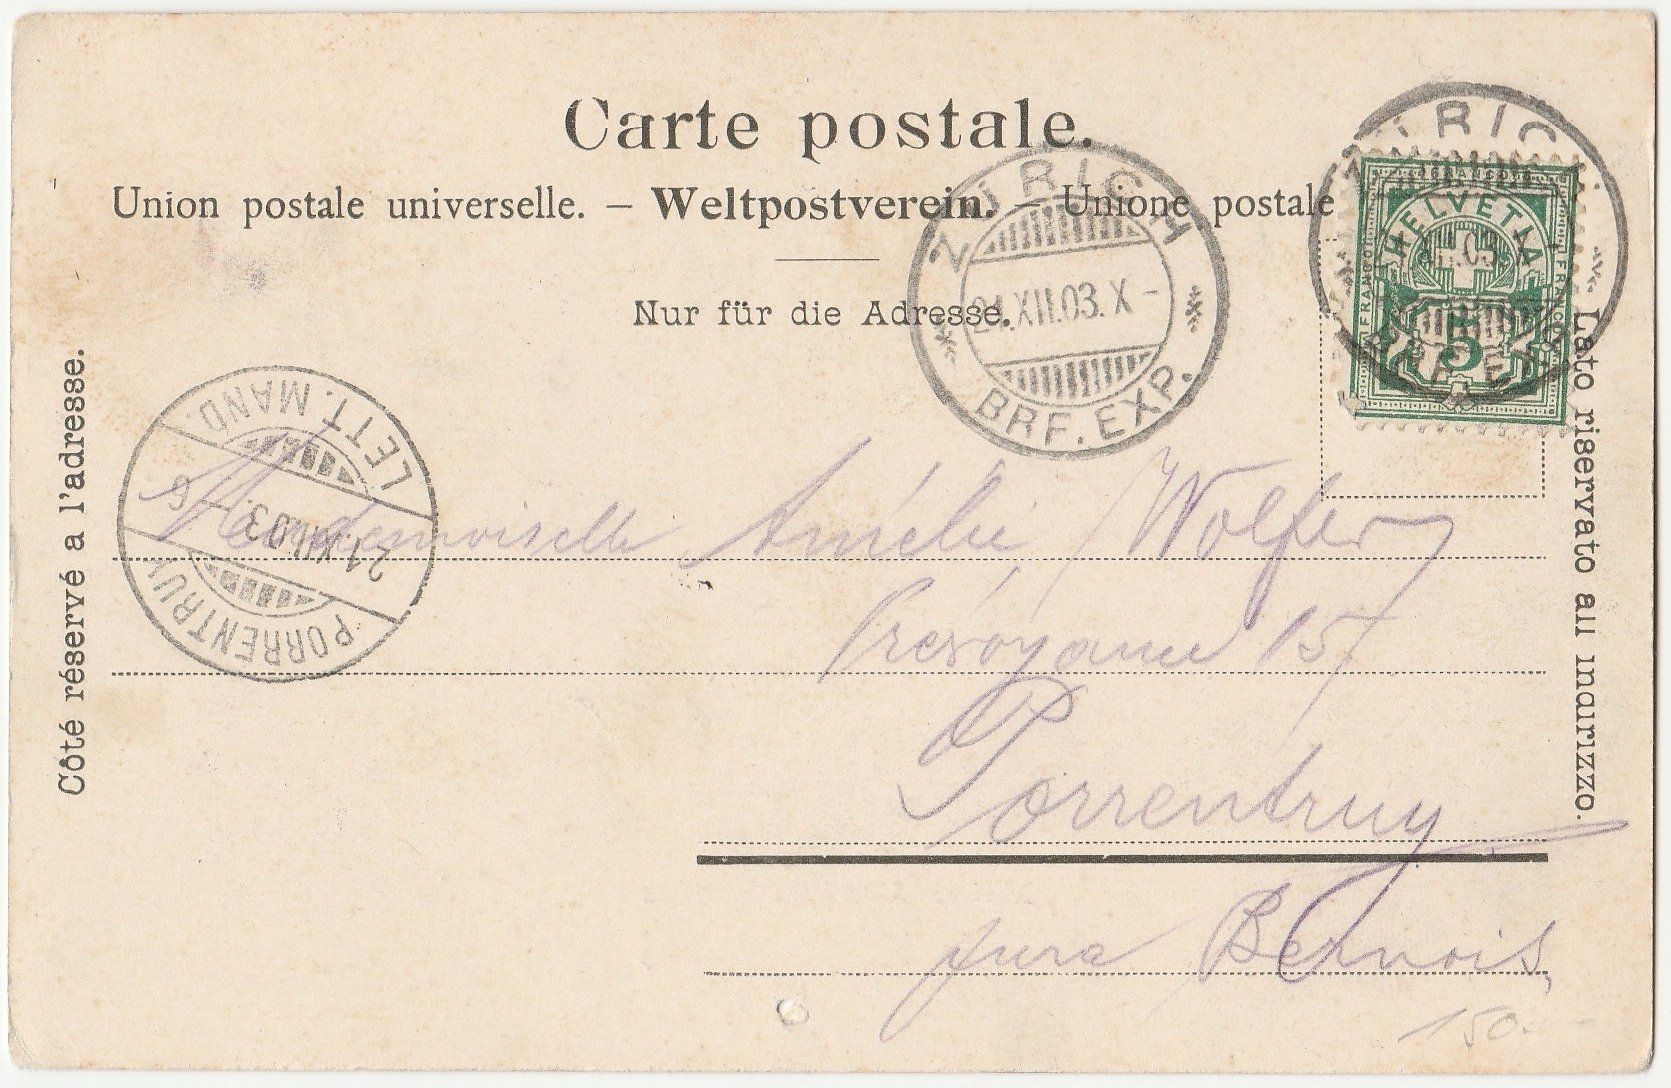 Carte postale.
Union postale universelle. – Weltpostverein. – Unione postale
Nur für die Adresse.
Côté réservé a l'adresse.
Lato riservato all indirizzo.
ZÜRICH
21.XII.03.X –
BRF. EXP.
ZÜRICH
XII.03.X –
BRF. EXP.
HELVETIA
FRANCO
5
LETT. MAND.
21 XII 03 – 6
PORRENTRUY
Mademoiselle Amélie Wolfer
15
Porrentruy
Jura Bernois,
150.-